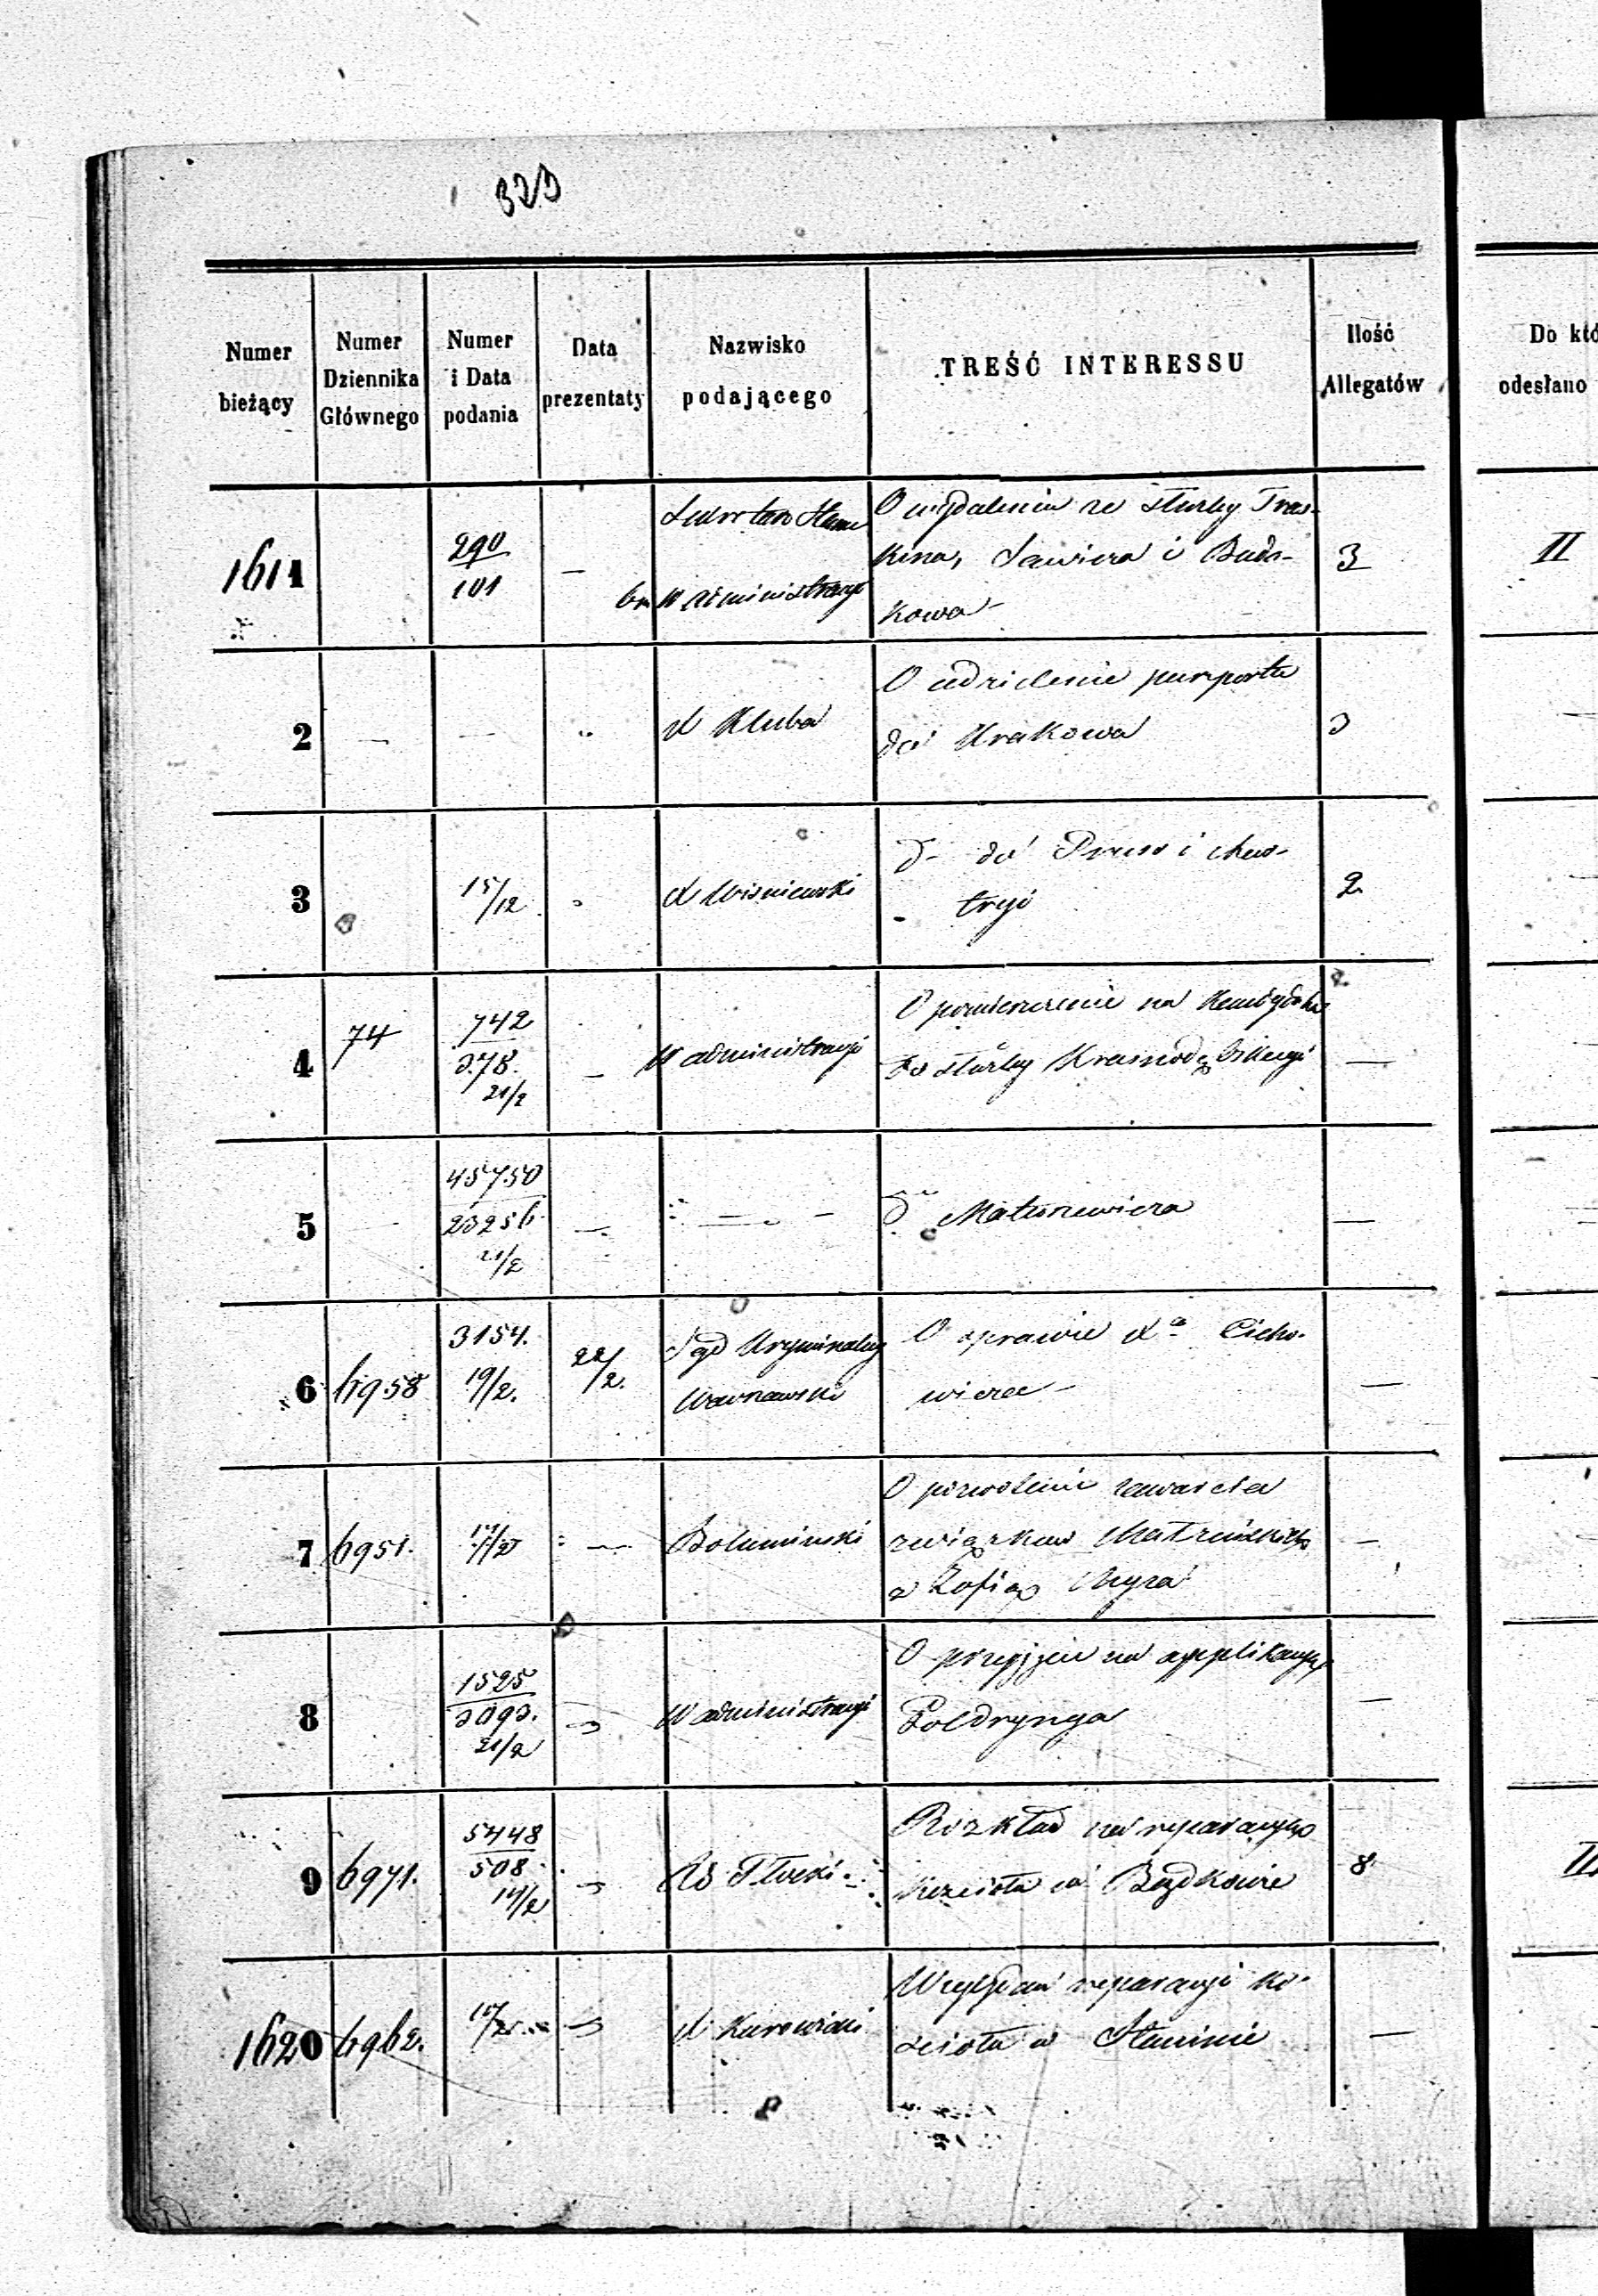 323
Numer bieżący
Numer Dziennika Głównego
Numer i Data podania
Data prezentaty
Nazwisko podającego
TREŚĆ INTERESSU
Ilość Allegatów
Do któ
odesłano
1611
290
101
—
W administracyi
O wydalenie ze służby Tras-
kina, Sawicza i Buda-
kowa
3
II
2
—
—
X Kluba
O udzielenie paszportu
do Krakowa
3
3
15/12
X Wiśniewski
d- do Pruss i Aus-
tryi
2
4
74
742
378.
21/2
—
W administracyi
O pomieszczenie na
do służby
—
5
—
45750
23256
21/2
—
— —
d Matusewicza
—
6
6958
3154.
19/2.
22/2.
Sąd Kryminalny
Warszawski
O sprawie Xa Cicho-
wicza
—
7
6951.
—
Boluminski
O pozwolenie zawarcia
związków Małżeńskich
z Zofią
—
8
1525
3093.
21/2
W administracyi
O przyjęcie na applikacyę
Zoldrynga
—
9
6971.
5448
508
14/2
Płocki
Rozkład na reparacyę
kościoła w Bądkowie
8
II
1620
6962.
X Kurowicki
Względem reparacyi ko-
ścioła w Słaminie
—